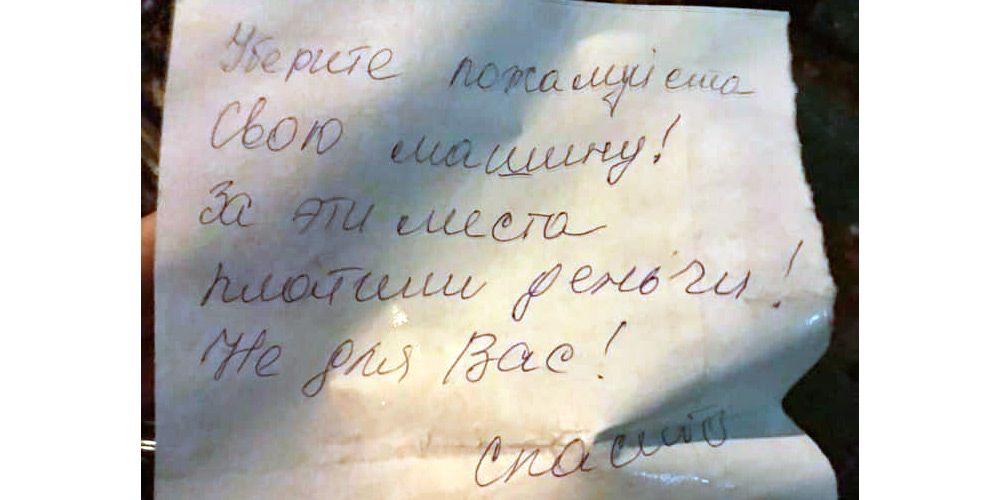 Уберите пожалуйста
Свою машину!
За эти места
платили деньги!
Не для Вас!
Спасибо